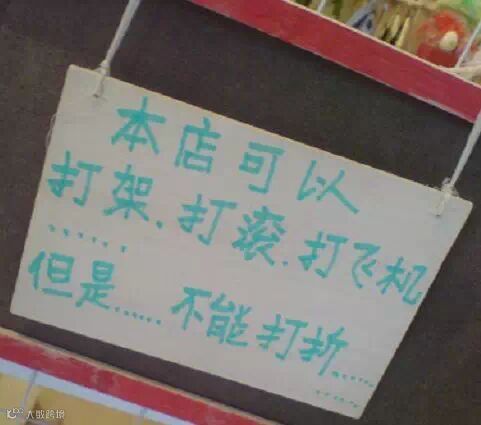 本店可以
打架.打滚.打飞机
......
但是......不能打折......
......
大数跨境